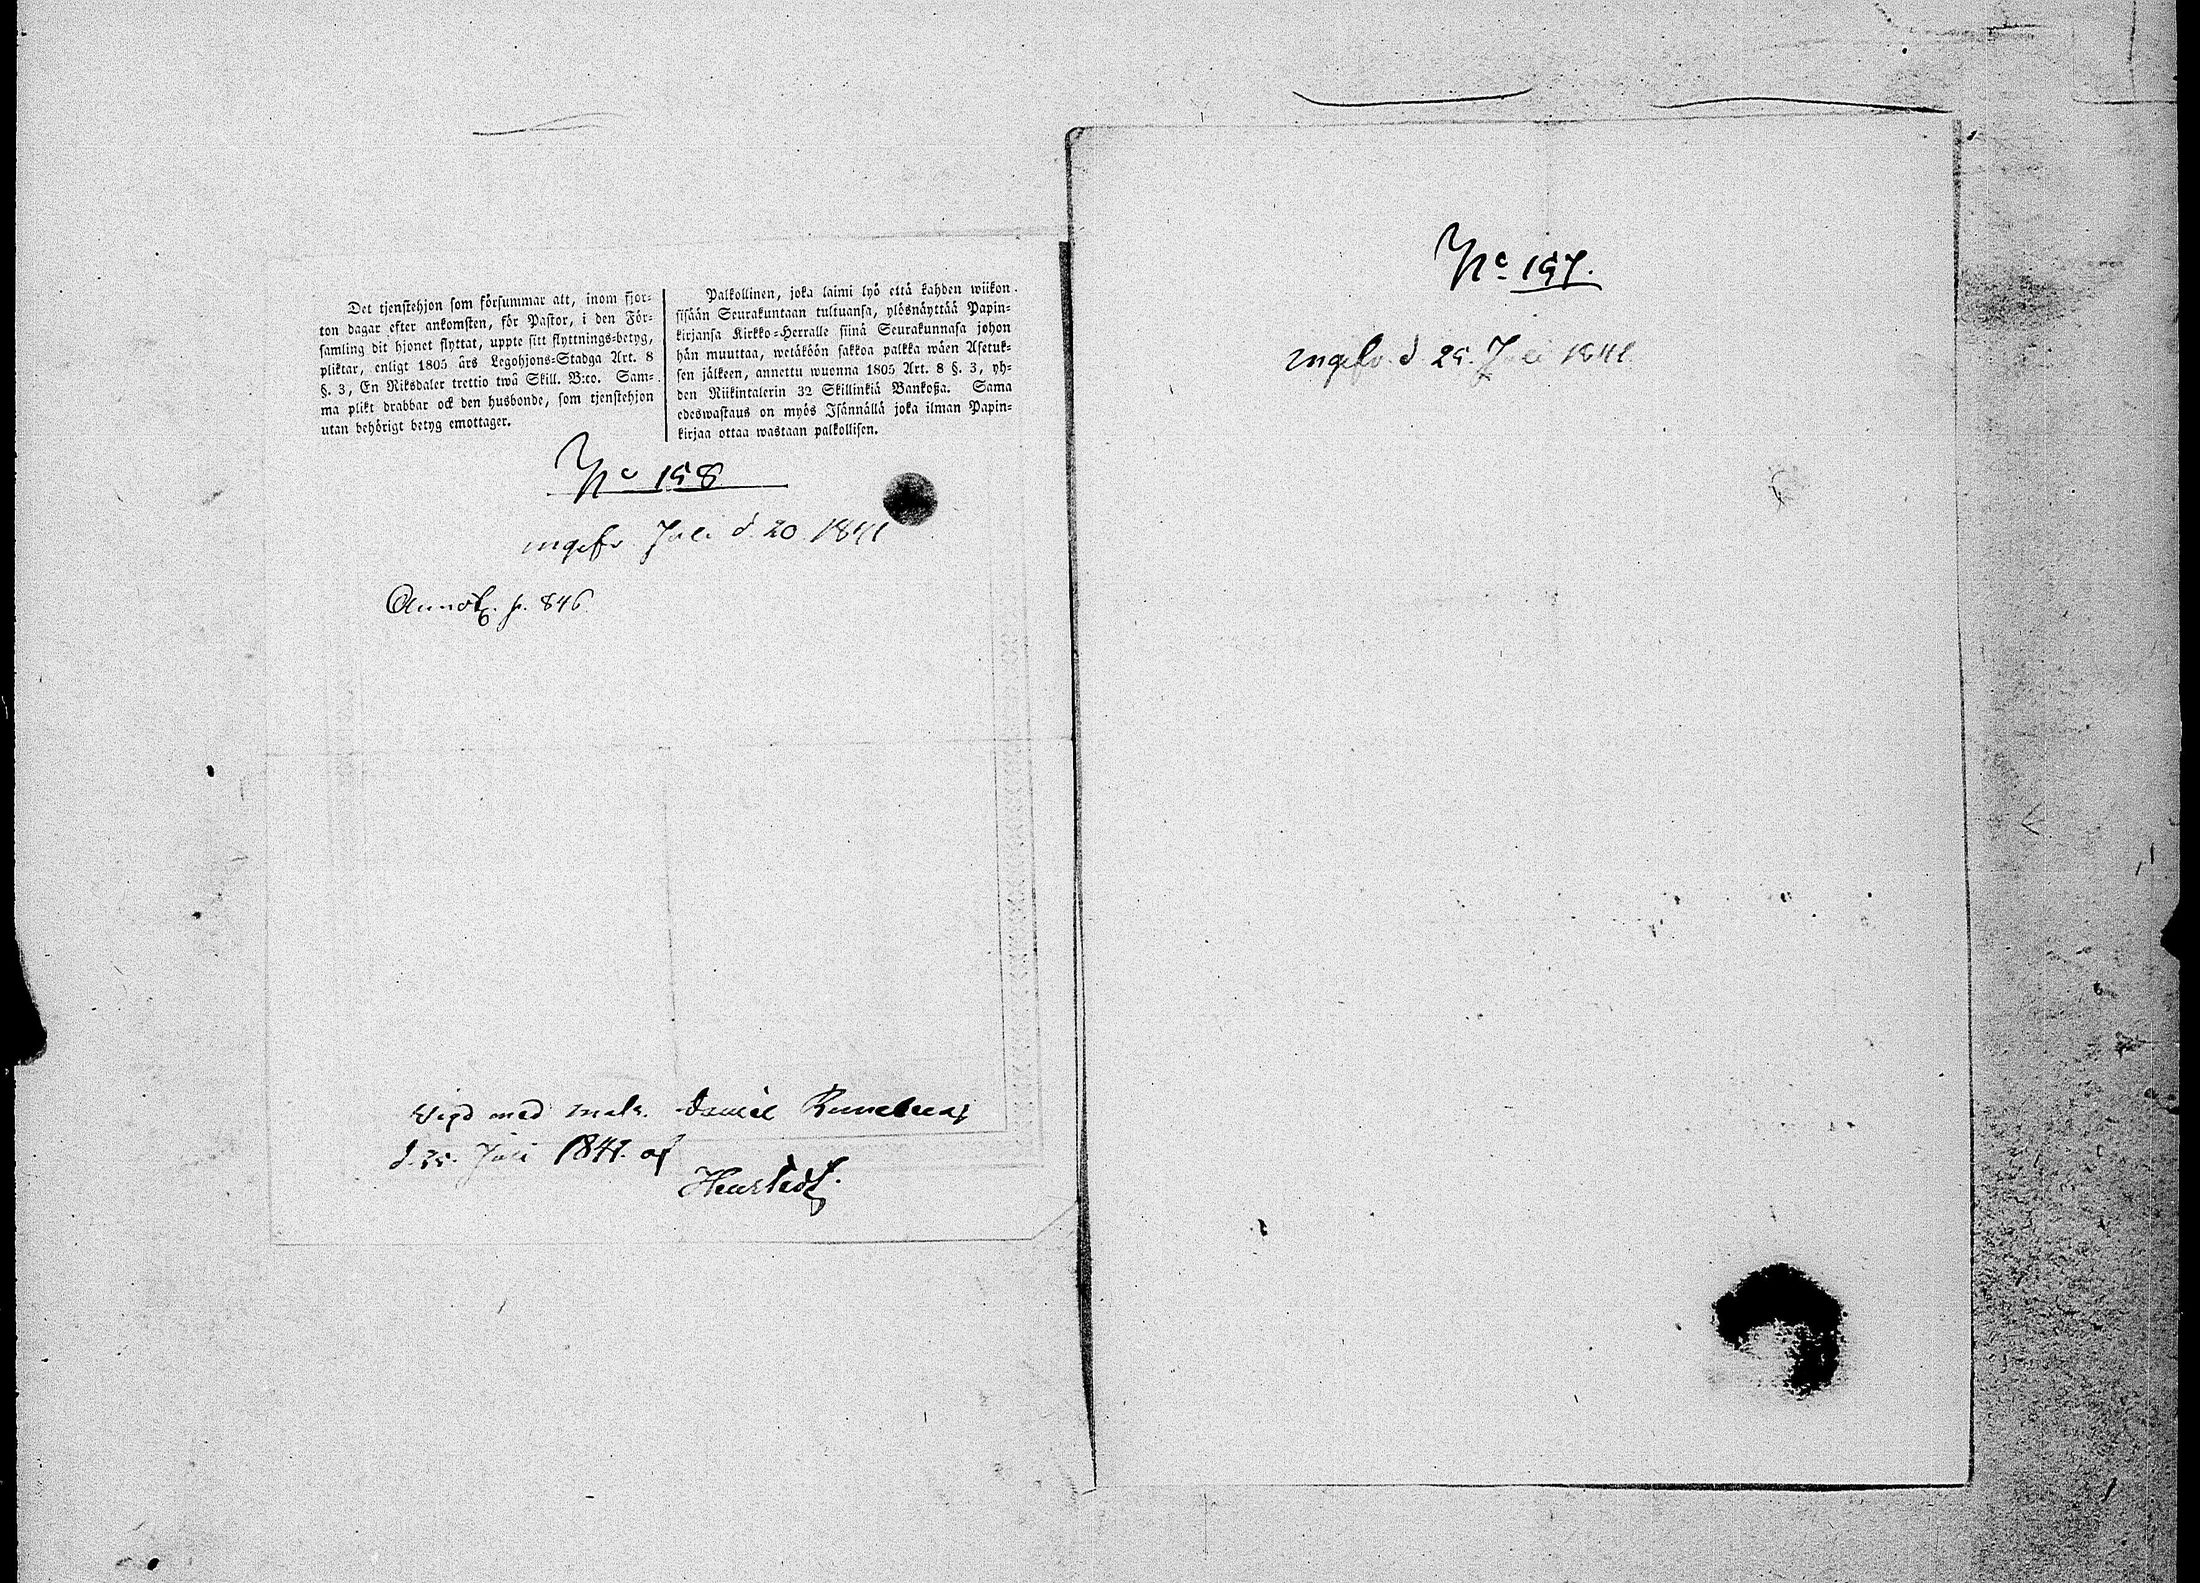 Det tjenstehjon som försummar att, inom fjor-
ton dagar efter ankomsten, för Pastor, i den För-
samling dit hjonet flyttat, uppte sitt flyttnings-betyg,
pliktar, enligt 1805 års Legohjons-Stadga Art. 8
§. 3, En Riksdaler trettio twå Skill. B:co. Sam-
ma plikt drabbar ock den husbonde, som tjenstehjon
utan behörigt betyg emottager.
Palkollinen, joka laimi lyö että kahden wiikon
sisään Seurakuntaan tultuansa, ylösnäyttää Papin-
kirjansa Kirkko-Herralle siinä Seurakunnasa johon
hän muuttaa, wetäköön sakkoa palkka wäen Asetuk-
sen jälkeen, annettu wuonna 1805 Art. 8 §. 3, yh-
den Riikintalerin 32 Skillinkiä Bankoßa. Sama
edeswastaus on myös Isännällä joka ilman Papin-
kirjaa ottaa wastaan palkollisen.
No 158
ingefv. Juli d. 20 1841
Annot. p. 846
Wigd med Daniel
d. 25. Juli 1841. af
No 157.
ingefv. d 25. Juli 1841